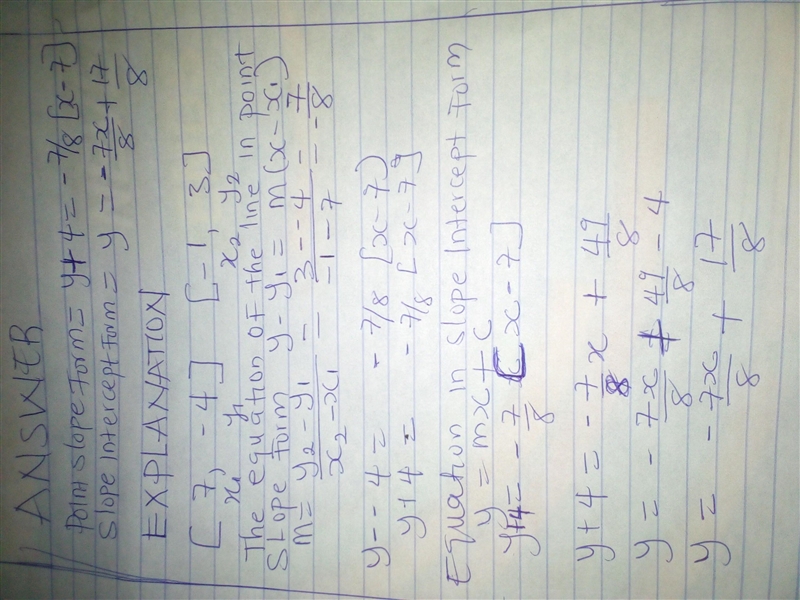 ANSWER
Point Slope Form = y+4 = -7/8 [x-7]
Slope Intercept Form = y = -7x/8 + 17/8
EXPLANATION
[7, -4] [-1, 3]
x1 y1 x2 y2
The equation of the line in point
Slope Form y-y1 = m(x-x1)
m = y2-y1/x2-x1 = 3--4/-1-7 = 7/-8
y--4 = -7/8 [x-7)
y+4 = -7/8 [x-7]
Equation in Slope Intercept Form
y = mx+c
y+4 = -7/8 [x-7]
y+4 = -7/8 x + 49/8
y = -7x/8 + 49/8 - 4
y = -7x/8 + 17/8